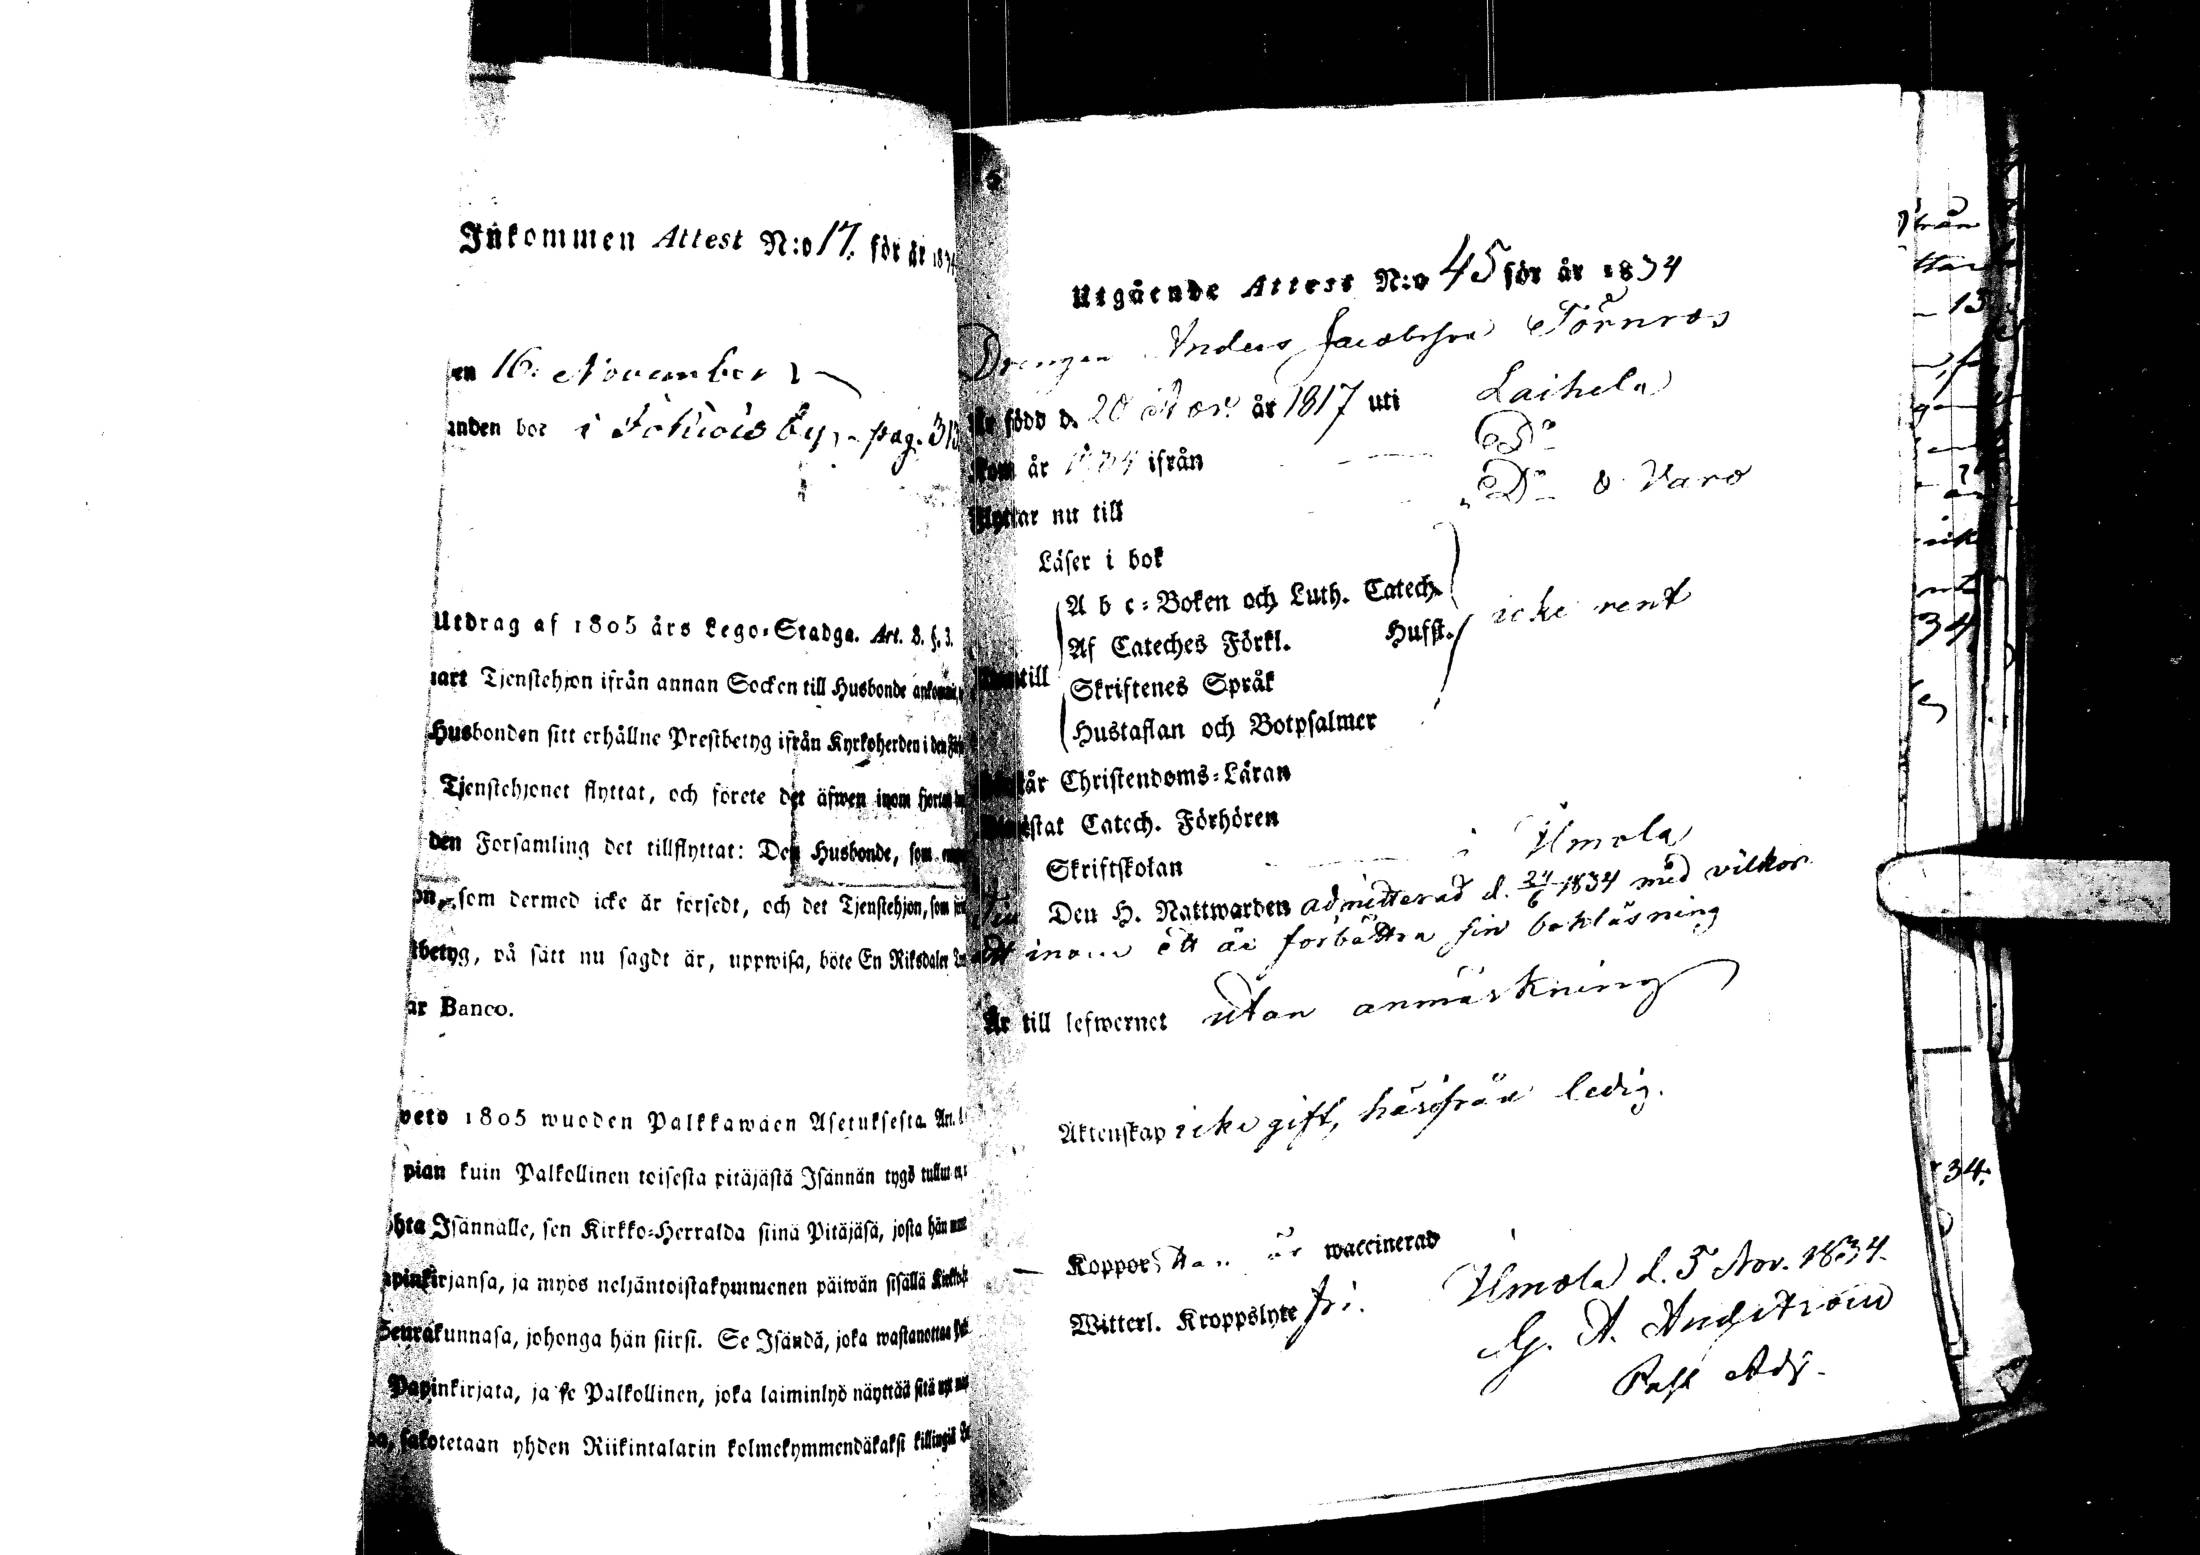 Inkommen Attest N:o 17. för år 1834
en 16. November
anden bor i Jokioisby, pag. 313
Utdrag af 1805 års Lego-Stadga. Art. 8. §. 3.
nart Tjenstehjon ifrån annan Socken till Husbonde
Husbonden sitt erhållne Prestbetyg ifrån Kyrkoherden i den
Tjenstehjonet flyttat, och förete det äfwen inom fjorton
den Församling det tillflyttat: Den Husbonde, som
on, som dermed icke är försedt, och det Tjenstehjon, som
tbetyg, på sätt nu sagdt är, uppwisa, böte En Riksdaler
ar Banco.
weto 1805 wuoden Palkkawäen Asetuksesta. Art.
pian kuin Palkollinen toisesta pitäjästä Isännän tygö tullut
ohta Isännälle, sen Kirkko-Herralda siinä Pitäjäsä, josta hän
apinkirjansa, ja myös neljäntoistakymmenen päiwän sisällä
Seurakunnasa, johonga hän siirsi. Se Isändä, joka wastanottaa
Papinkirjata, ja se Palkollinen, joka laiminlyö näyttää sitä nyt
sakotetaan yhden Riikintalarin kolmekymmendäkaksi killingiä
Utgående Attest N:o 45 för år 1834
Drengen Anders Jacobsson Törnros
Är född d. 20 Nov. år 1817 uti Laihela
Kom år 1834 ifrån D:o
Flyttar nu till D:o o Varo
Läser i bok
A b c-Boken och Luth. Catech.
Af Cateches Förkl. Hufst. icke rent
Skriftenes Språk
Hustaflan och Botpsalmer
Christendoms-Läran
Catech. Förhören
Skriftskolan i Ilmola
Den H. Nattwarden admitterad d. 24/6 1834 med vilkor
att inom ett år förbättra sin bokläsning
Är till lefwernet utan anmärkning
Äktenskap icke gift, härifrån ledig.
Koppor Han är waccinerad
Witterl. Kroppslyte fri. Ilmola d. 5 Nov. 1834.
G. A. Angström
Past Adj.